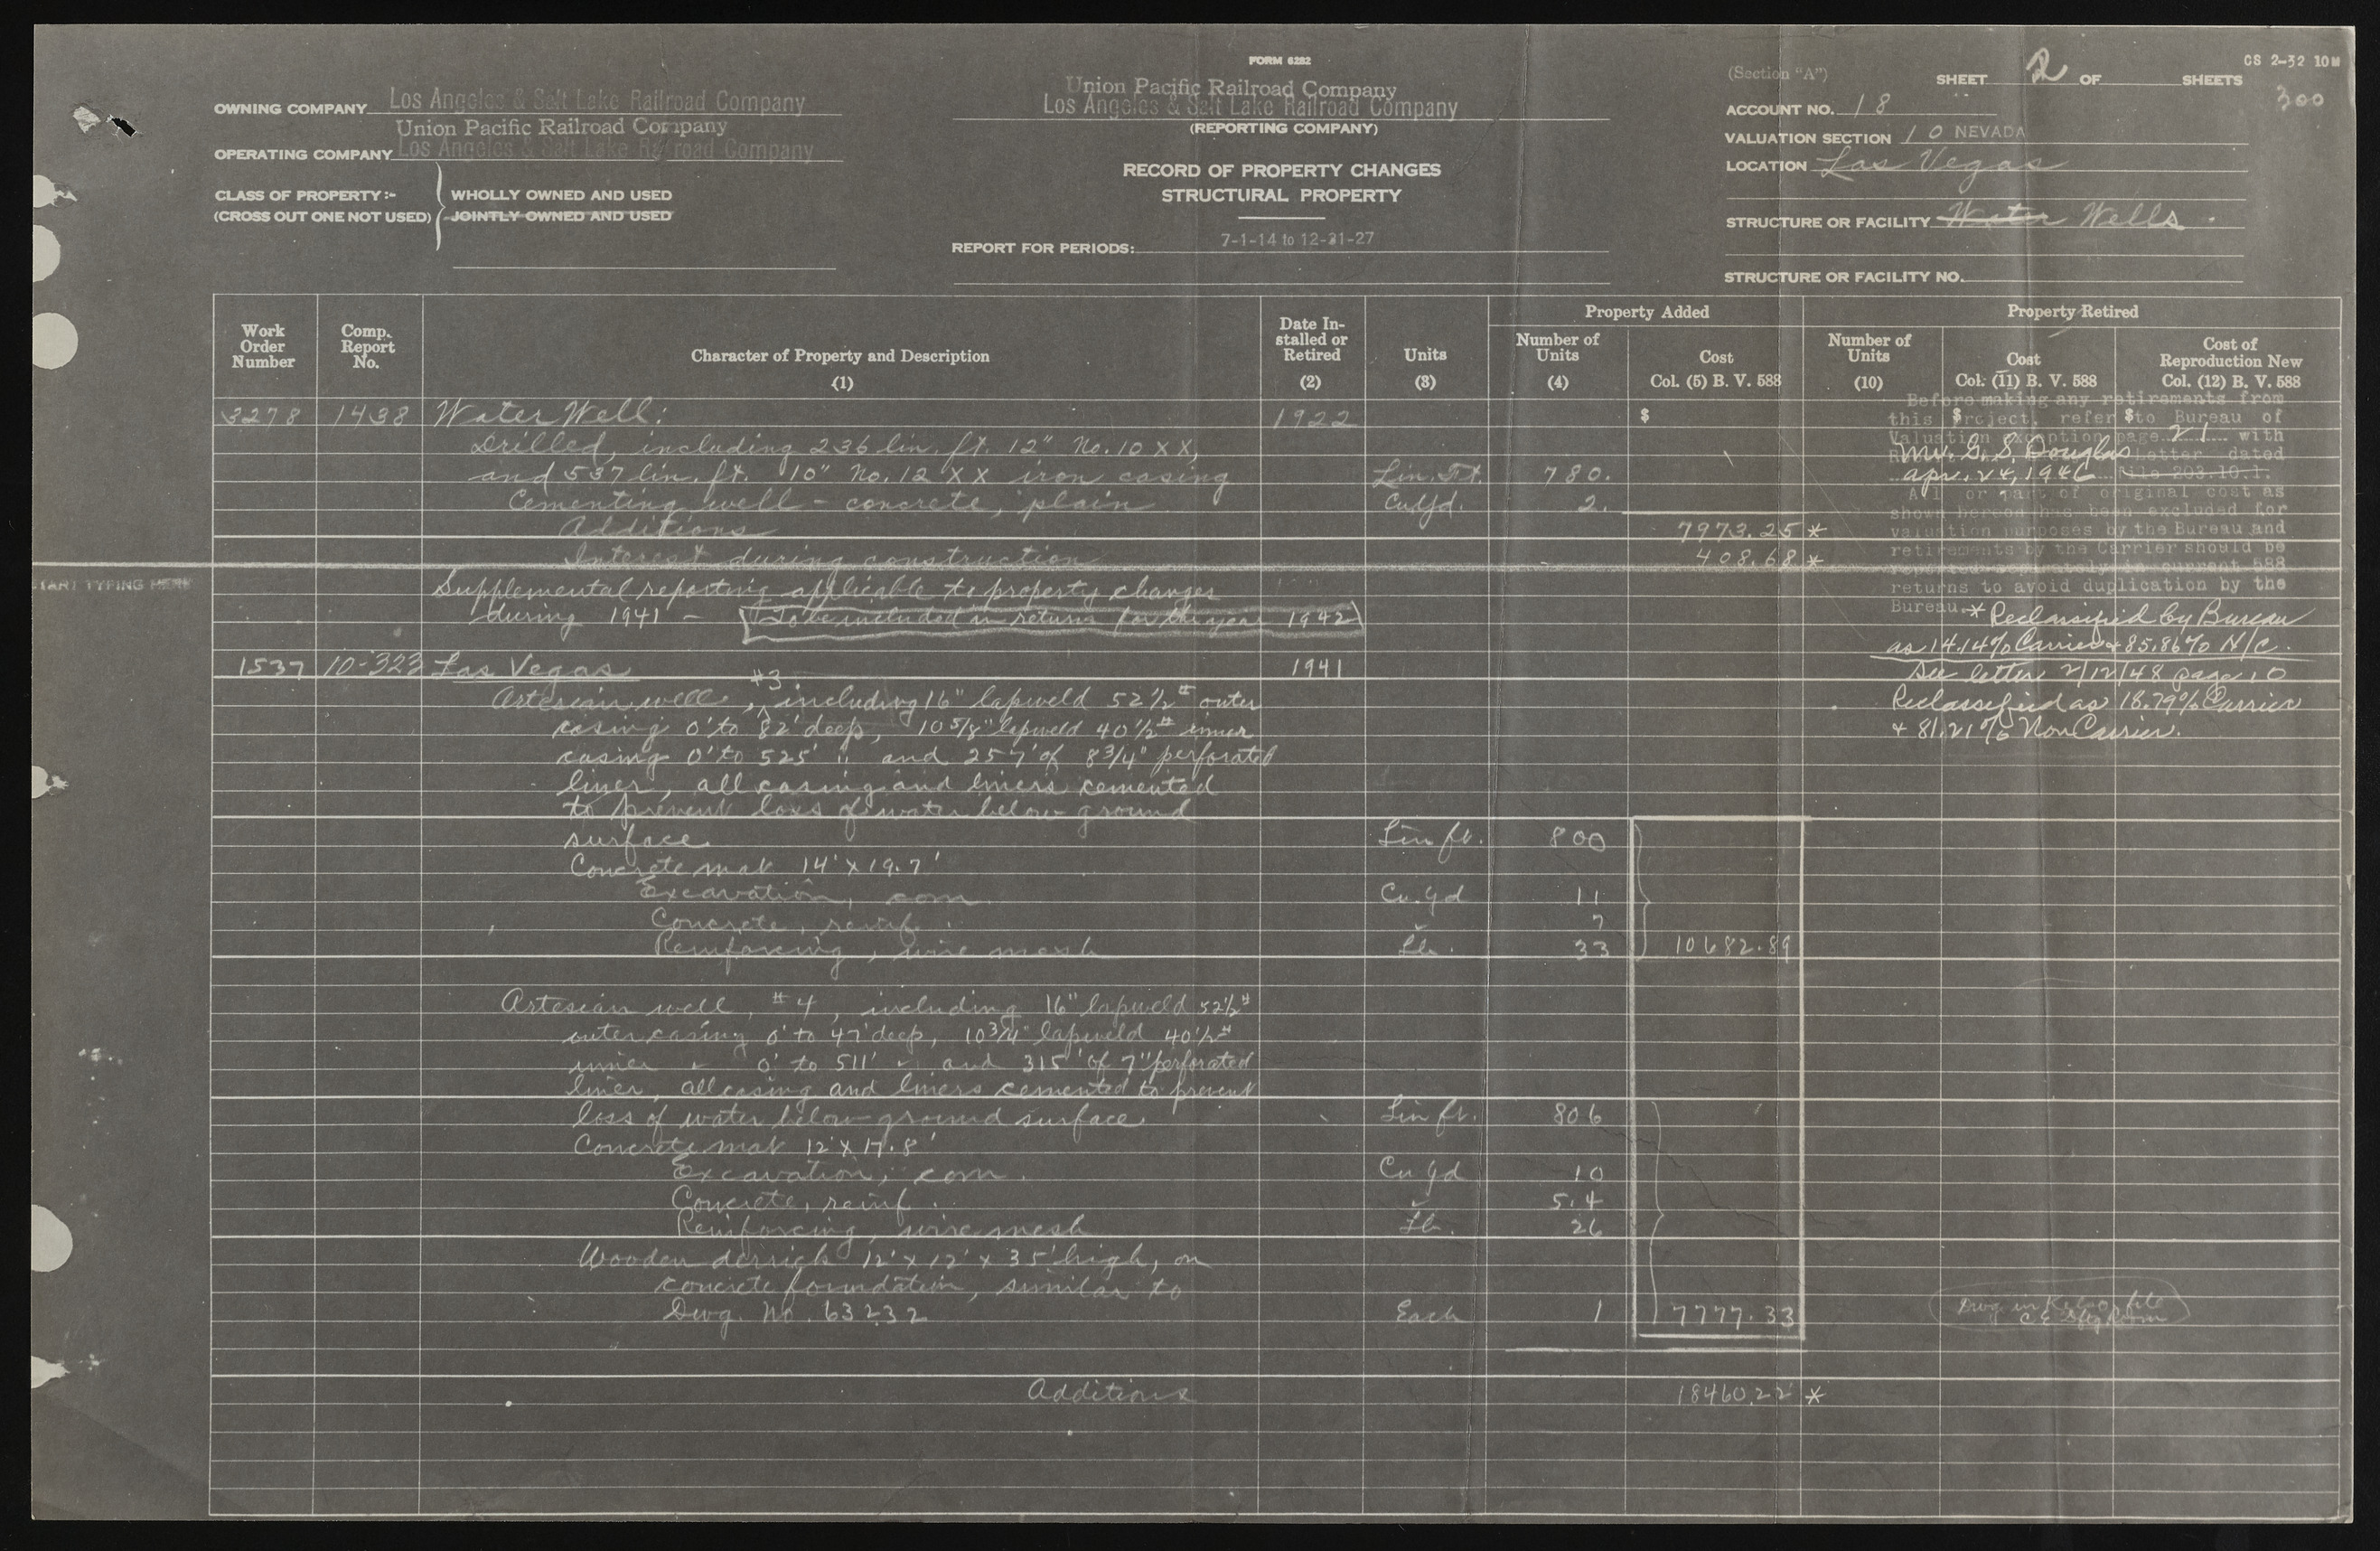 FORM 6282
CS 2-32 10M
300
(Section "A")
SHEET 2 OF SHEETS
OWNING COMPANY Los Angeles & Salt Lake Railroad Company
Union Pacific Railroad Company
OPERATING COMPANY Los Angeles & Salt Lake Railroad Company
CLASS OF PROPERTY:-
(CROSS OUT ONE NOT USED)
WHOLLY OWNED AND USED
JOINTLY OWNED AND USED
Union Pacific Railroad Company
Los Angeles & Salt Lake Railroad Company
(REPORTING COMPANY)
RECORD OF PROPERTY CHANGES
STRUCTURAL PROPERTY
REPORT FOR PERIODS: 7-1-14 to 12-31-27
ACCOUNT NO. 18
VALUATION SECTION 10 NEVADA
LOCATION Las Vegas
STRUCTURE OR FACILITY Water Wells
STRUCTURE OR FACILITY NO.
Work Order Number
Comp. Report No.
Character of Property and Description (1)
Date Installed or Retired (2)
Units (3)
Property Added
Number of Units (4)
Cost Col. (5) B. V. 588
Property Retired
Number of Units (10)
Cost Col. (11) B. V. 588
Cost of Reproduction New Col. (12) B. V. 588
3278 1438 Water Well: 1922 $ $ $
Drilled, including 236 lin. ft. 12" No. 10 XX,
and 537 lin. ft. 10" No. 12 XX iron casing Lin. Ft. 780.
Cementing well - concrete, plain Cu.Yd. 2.
Additions 7973.25 *
Interest during construction 408.68 *
START TYPING HERE
Supplemental reporting applicable to property changes
during 1941 - To be included in returns for the year 1942
1537 10-323 Las Vegas 1941
Artesian well, #3, including 16" lapweld 52½# outer
casing 0' to 82' deep, 10 5/8" lapweld 40½# inner
casing 0' to 525' " and 257' of 8 3/4" perforated
liner, all casing and liners cemented
to prevent loss of water below ground
surface Lin ft. 800
Concrete mat 14' x 19.7'
Excavation, com. Cu. Yd 11
Concrete, reinf. " 7
Reinforcing, wire mesh Lb. 33 10682.89
Artesian well, #4, including 16" lapweld 52½#
outer casing 0' to 47' deep, 10 3/4" lapweld 40½#
inner " 0' to 511' " and 315' of 7" perforated
liner, all casing and liners cemented to prevent
loss of water below ground surface Lin ft. 806
Concrete mat 12' x 17.8'
Excavation, com. Cu Yd 10
Concrete, reinf. " 5.4
Reinforcing, wire mesh Lb. 26
Wooden derrick 12' x 12' x 35' high, on
concrete foundation, similar to
Dwg. No. 63232 Each 1 7777.33
Additions 18460.22 *
Before making any retirements from
this project, refer to Bureau of
Valuation exception page 21 with
Mr. G. S. Douglas letter dated
Apr. 24, 1946 File 203.10.1.
All or part of original cost as
shown hereon has been excluded for
valuation purposes by the Bureau and
retirements by the Carrier should be
reported separately in current 588
returns to avoid duplication by the
Bureau. * Reclassified by Bureau
as 14.14% Carrier & 85.86% N/C.
See letter 2/12/48 page 10
Reclassified as 18.79% Carrier
& 81.21% Non Carrier.
Dwg in file
C E Room